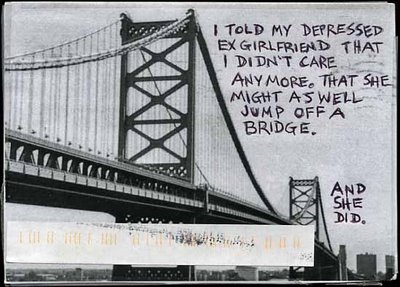 I TOLD MY DEPRESSED
EX GIRLFRIEND THAT
I DIDN'T CARE
ANYMORE. THAT SHE
MIGHT AS WELL
JUMP OFF A
BRIDGE.
AND
SHE
DID.